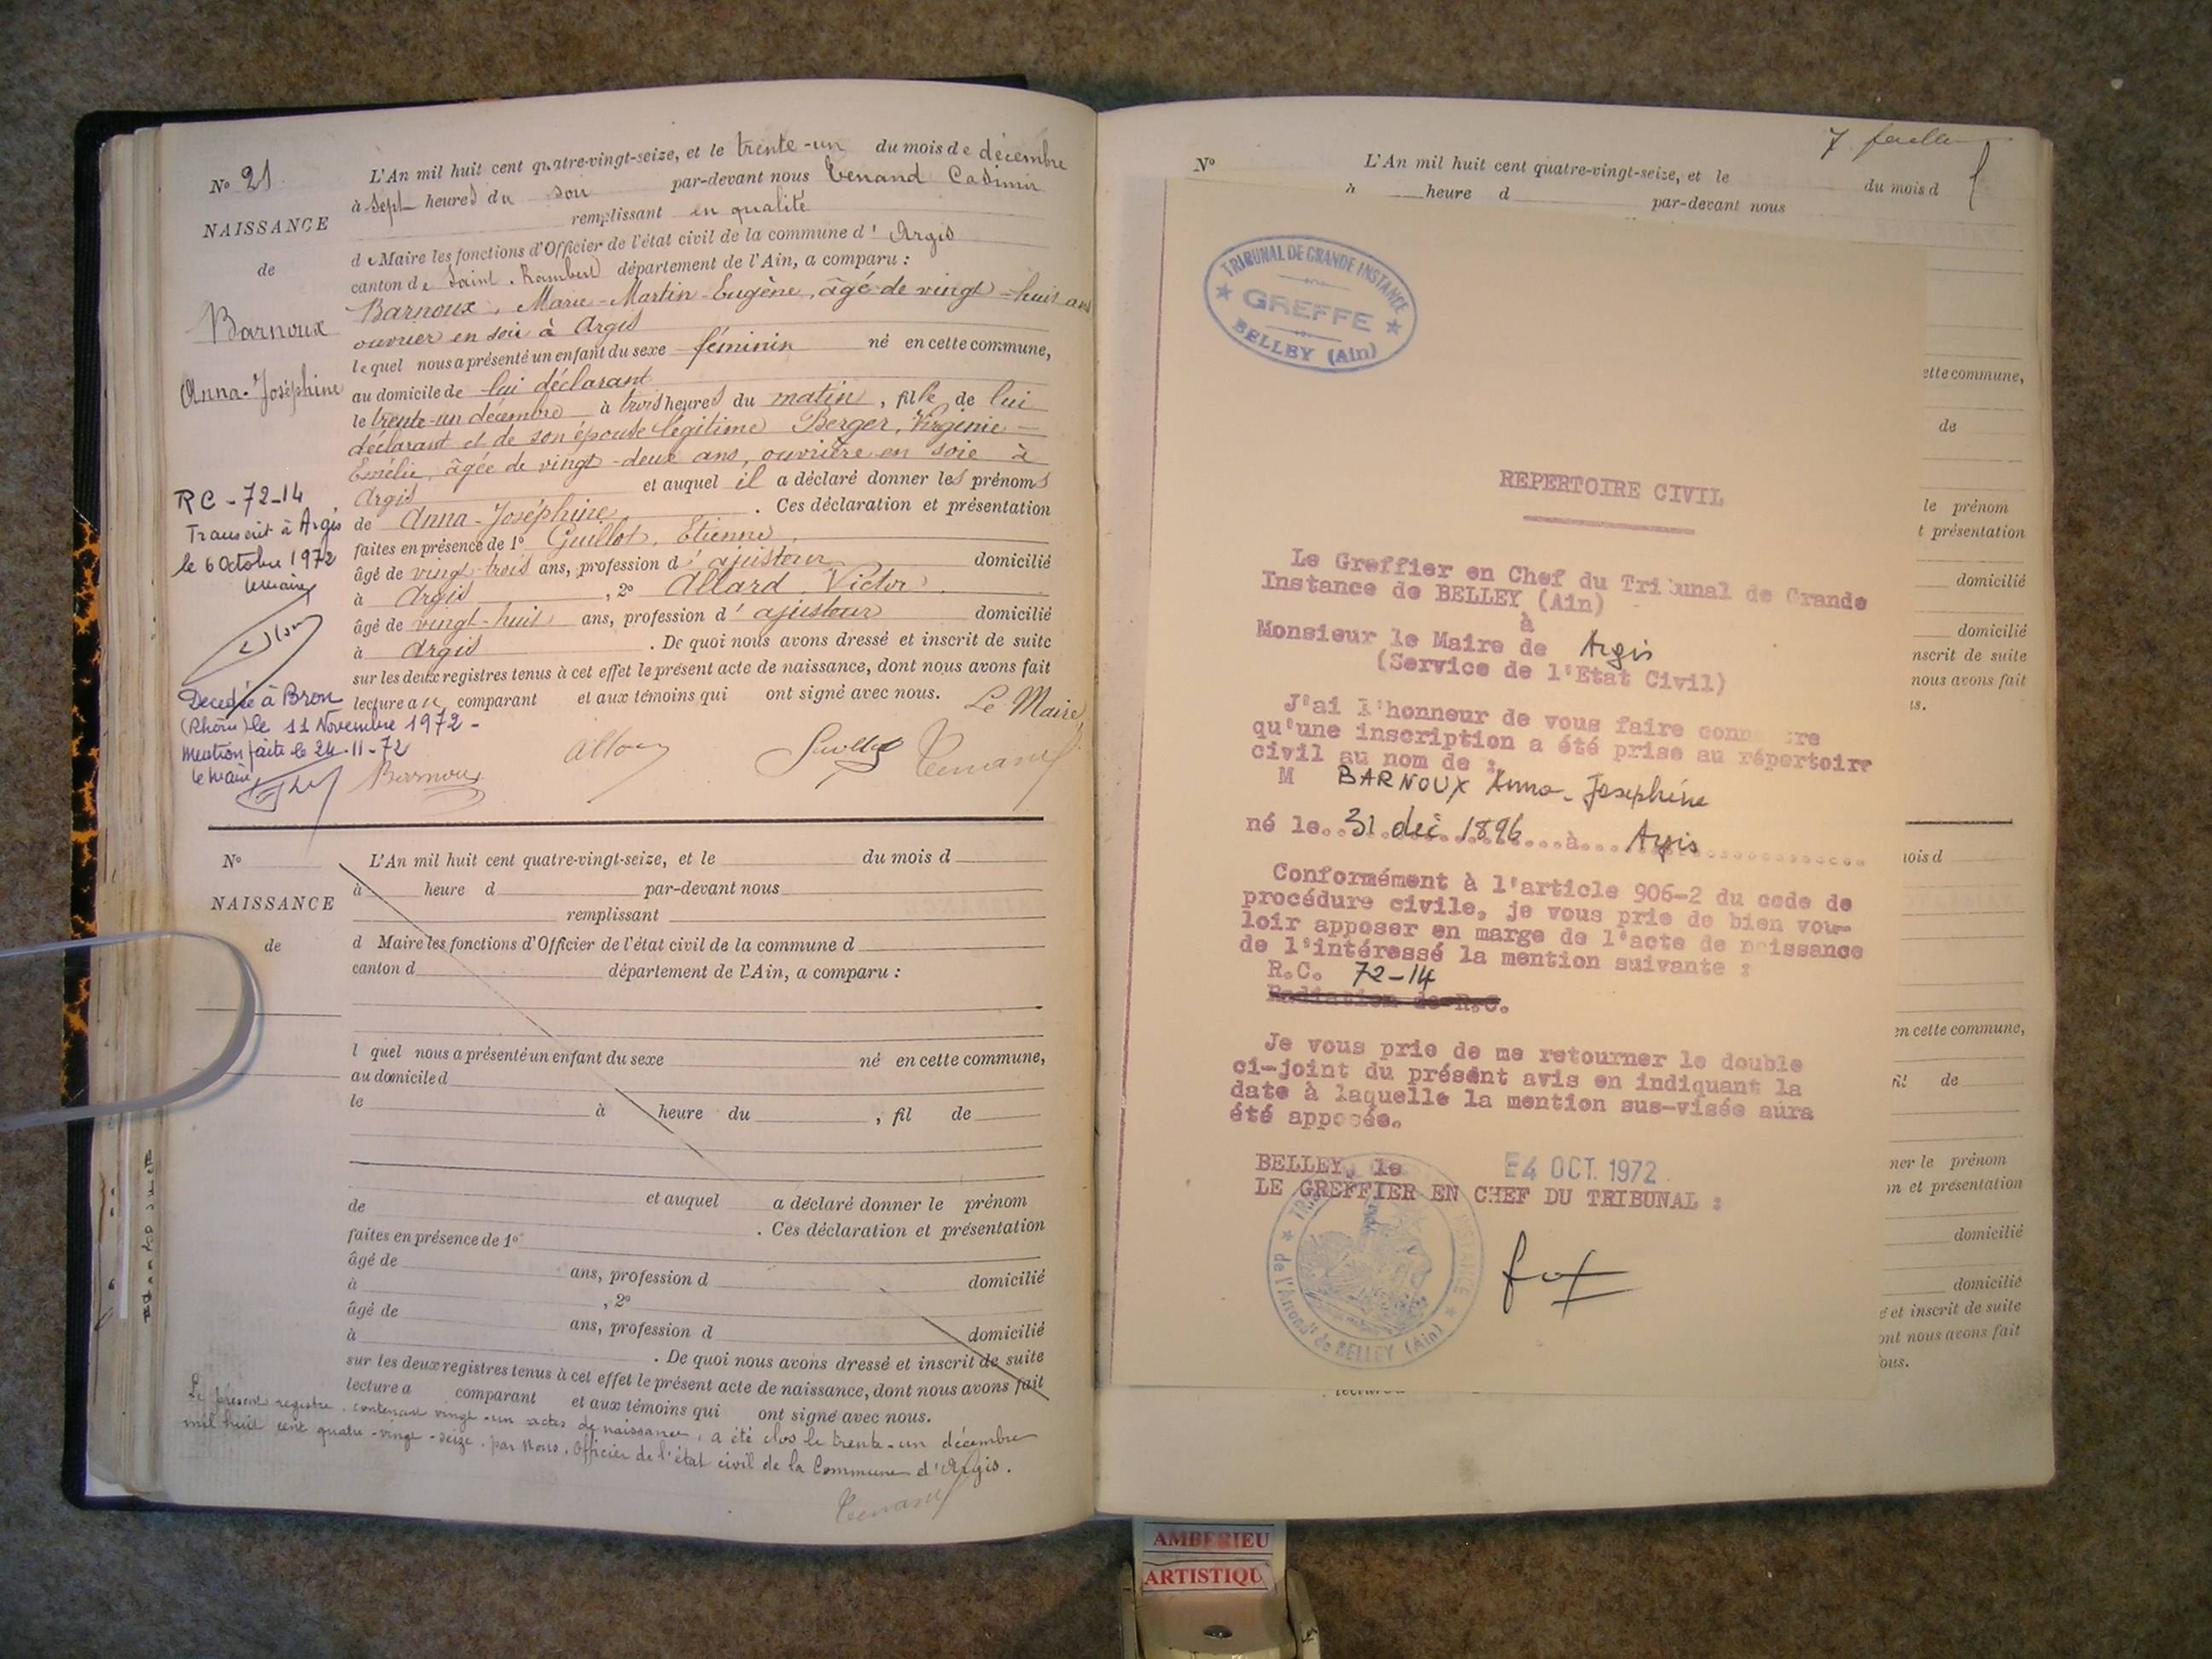 N° 21
NAISSANCE
de
Barnoux
Anna-Joséphine
RC - 72-14
Transcrit à Argis
le 6 Octobre 1972
le maire
Decedée à Bron
(Rhône) le 11 Novembre 1972 -
mention faite le 24-11-72
le maire
L'An mil huit cent quatre-vingt-seize, et le trente-un du mois de décembre
à sept heures du soir par-devant nous Tenand Casimir
remplissant en qualité
de Maire les fonctions d'Officier de l'état civil de la commune d' Argis
canton de Saint-Rambert département de l'Ain, a comparu :
Barnoux, Marie-Martin-Eugène, âgé de vingt-huit ans
ouvrier en soie à Argis
lequel nous a présenté un enfant du sexe féminin né en cette commune,
au domicile de lui déclarant
le trente-un décembre à trois heures du matin, fille de lui
déclarant et de son épouse légitime Berger, Virginie-
Emélie, âgée de vingt-deux ans, ouvrière en soie à
Argis et auquel il a déclaré donner les prénoms
de Anna-Joséphine . Ces déclaration et présentation
faites en présence de 1° Guillot, Etienne,
âgé de vingt-trois ans, profession d' ajusteur domicilié
à Argis , 2° Allard, Victor,
âgé de vingt-huit ans, profession d' ajusteur domicilié
à Argis . De quoi nous avons dressé et inscrit de suite
sur les deux registres tenus à cet effet le présent acte de naissance, dont nous avons fait
lecture au comparant et aux témoins qui ont signé avec nous. Le Maire,
Barnoux Tenand
N°
NAISSANCE
de
L'An mil huit cent quatre-vingt-seize, et le du mois d
à heure d par-devant nous
remplissant
d Maire les fonctions d'Officier de l'état civil de la commune d
canton d département de l'Ain, a comparu :
l quel nous a présenté un enfant du sexe né en cette commune,
au domicile d
le à heure du , fil de
et auquel a déclaré donner le prénom
de . Ces déclaration et présentation
faites en présence de 1°
âgé de ans, profession d domicilié
à , 2°
âgé de ans, profession d domicilié
à . De quoi nous avons dressé et inscrit de suite
sur les deux registres tenus à cet effet le présent acte de naissance, dont nous avons fait
lecture a comparant et aux témoins qui ont signé avec nous.
Le présent registre, contenant vingt-un actes de naissance, a été clos le trente-un décembre
mil huit cent quatre-vingt-seize, par Nous, Officier de l'état civil de la Commune d'Argis.
Tenand
N° L'An mil huit cent quatre-vingt-seize, et le du mois d
à heure d par-devant nous
TRIBUNAL DE GRANDE INSTANCE
GREFFE
BELLEY (Ain)
REPERTOIRE CIVIL
Le Greffier en Chef du Tribunal de Grande
Instance de BELLEY (Ain)
à
Monsieur le Maire de Argis
(Service de l'Etat Civil)
J'ai l'honneur de vous faire conn re
qu'une inscription a été prise au répertoire
civil au nom de :
M BARNOUX Anna-Josephine
né le 31 déc 1896 à Argis
Conformément à l'article 906-2 du code de
procédure civile, je vous prie de bien vou-
loir apposer en marge de l'acte de naissance
de l'intéressé la mention suivante :
R.C. 72-14
Radiation de R.C.
Je vous prie de me retourner le double
ci-joint du présent avis en indiquant la
date à laquelle la mention sus-visée aura
été apposée.
BELLEY, le E4 OCT. 1972
LE GREFFIER EN CHEF DU TRIBUNAL :
de l'Arrondt de BELLEY (Ain)
ette commune,
de
le prénom
t présentation
domicilié
domicilié
nscrit de suite
nous avons fait
us.
ois d
en cette commune,
fil de
ner le prénom
n et présentation
domicilié
domicilié
é et inscrit de suite
ont nous avons fait
ous.
AMBERIEU
ARTISTIQU